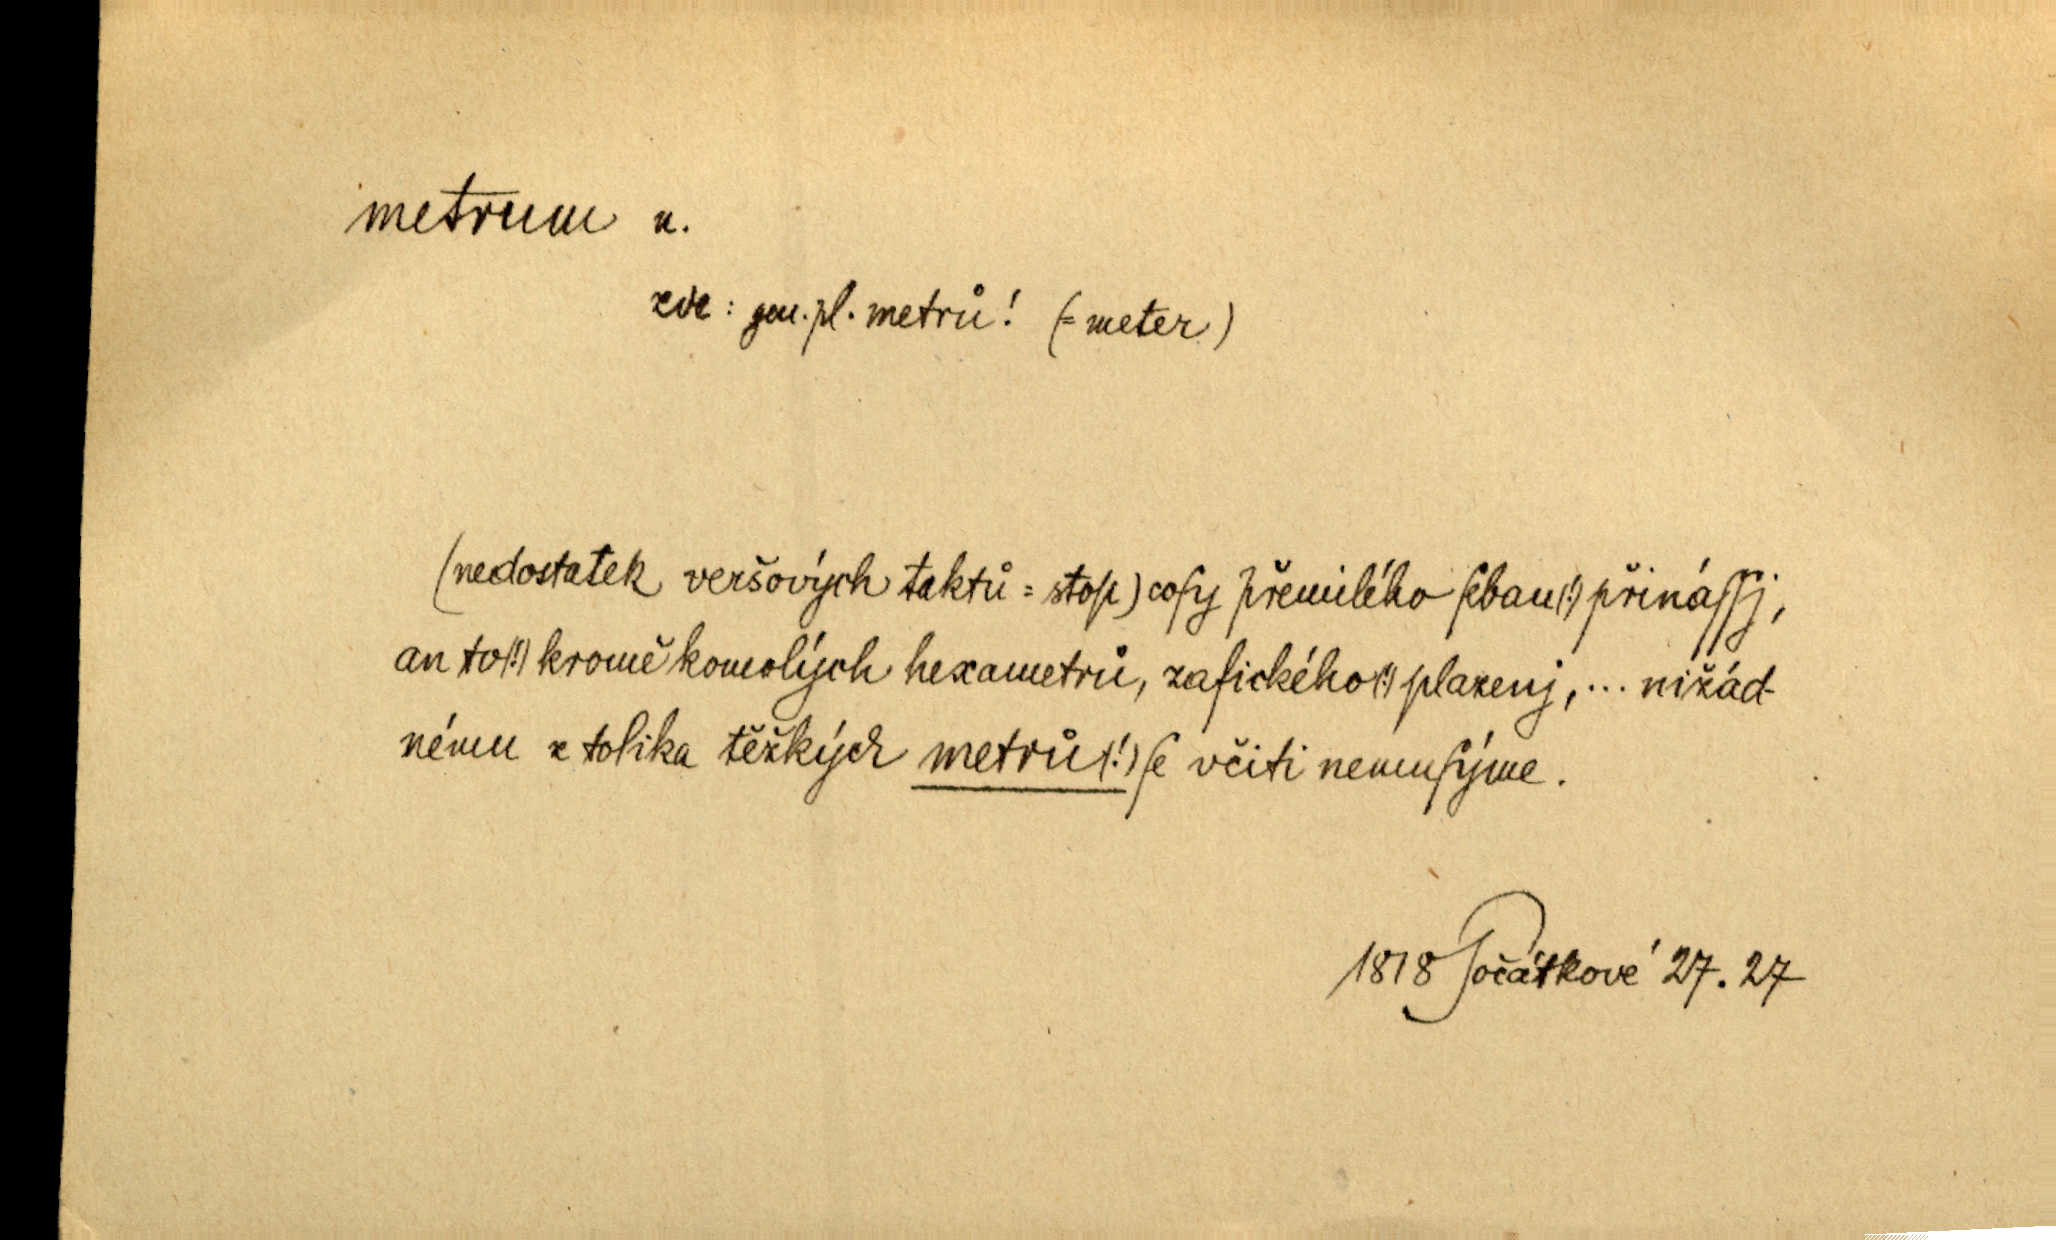 metrum n.
zde: gen. pl. metrů! (= meter)
(nedostatek veršových taktů = stop) coſy přemilého ſebau(!) přináſſj,
an to(!) kromě komolých hexametrů, zafického(!) plazenj, ... nižád-
nému z tolika těžkých metrů(!) ſe včiti nemuſýme.
1818 Počátkové 27.27